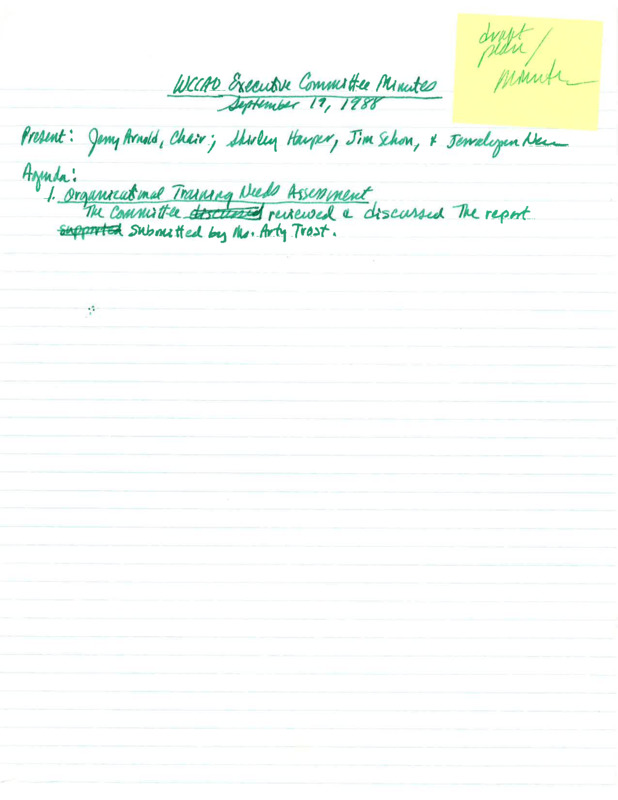 draft
plan /
Minutes
WCCAO Executive Committee Minutes
September 19, 1988
Present: Jerry Arnold, Chair; Shirley Harper, Jim Schon, &
Agenda:
1. Organizational Training Needs Assessment
The Committee discussed reviewed & discussed The report
supported Submitted by Ms. Arty Trost.